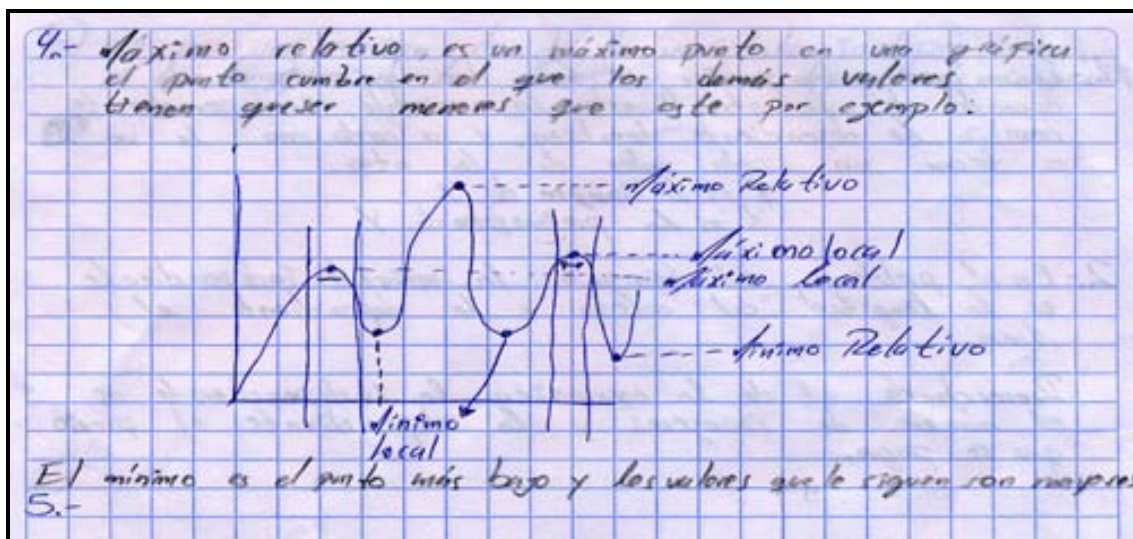 4.- Máximo relativo es un máximo punto en una gráfica
el punto cumbre en el que los demás valores
tienen queser meneres que este por ejemplo:
Máximo Relativo
Máximo local
Máximo Local
Mínimo Relativo
Mínimo
local
El mínimo es el punto más bajo y los valores que le siguen son mayores
5.-